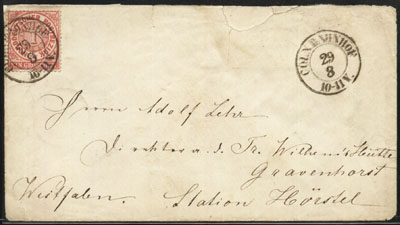 CÖLN BAHNHOF
29
8
10-11 V.
Herrn Adolf Lehr
Direktor a. d. Fr. Wilhelms Hütte
Gravenhorst
Westfalen. Station Hörstel